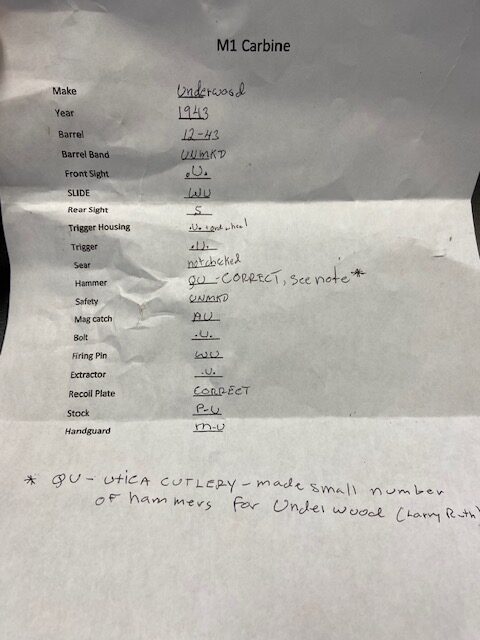 M1 Carbine
Make Underwood
Year 1943
Barrel 12-43
Barrel Band UNMKD
Front Sight .U.
SLIDE WU
Rear Sight S
Trigger Housing .U. + and wheel
Trigger .U.
Sear not checked
Hammer QU - CORRECT, see note*
Safety UNMKD
Mag catch AU
Bolt .U.
Firing Pin WU
Extractor .U.
Recoil Plate CORRECT
Stock P-U
Handguard M-U
* QU - UTICA CUTLERY - made small number
OF hammers for Underwood (Larry Ruth)